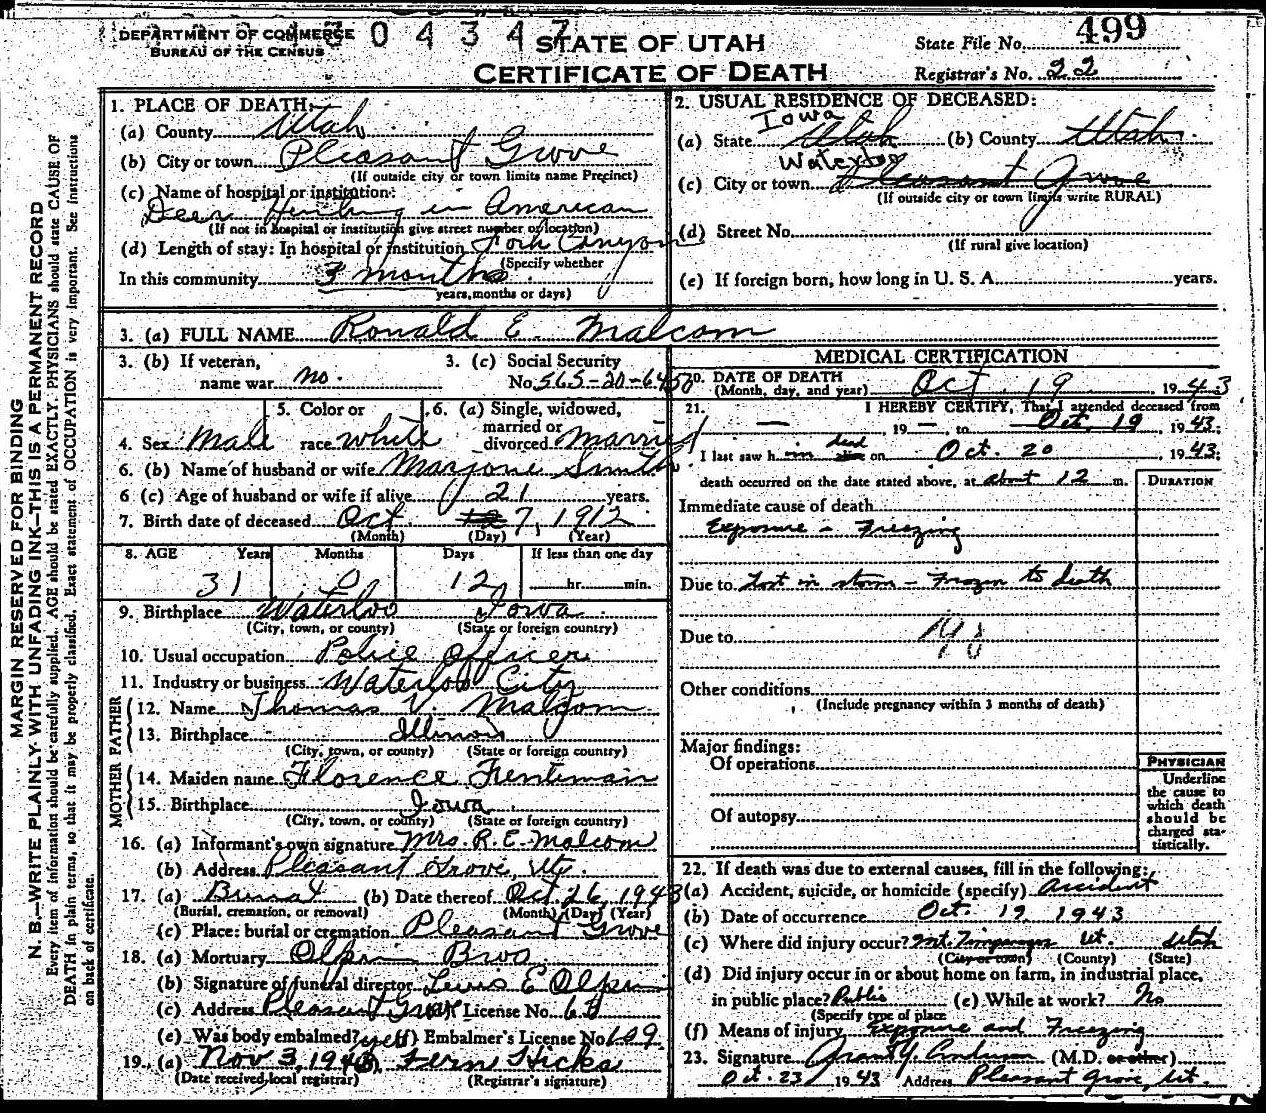 DEPARTMENT OF COMMERCE
BUREAU OF THE CENSUS
304347
STATE OF UTAH
CERTIFICATE OF DEATH
State File No. 499
Registrar's No. 22
MARGIN RESERVED FOR BINDING
N. B.—WRITE PLAINLY WITH UNFADING INK—THIS IS A PERMANENT RECORD
Every item of information should be carefully supplied. AGE should be stated EXACTLY. PHYSICIANS should state CAUSE OF
DEATH in plain terms, so that it may be properly classified. Exact statement of OCCUPATION is very important. See instructions
on back of certificate.
1. PLACE OF DEATH:
(a) County Utah
(b) City or town Pleasant Grove
(If outside city or town limits name Precinct)
(c) Name of hospital or institution:
Deer Hunting in American
(If not in hospital or institution give street number or location)
(d) Length of stay: In hospital or institution Fork Canyon
(Specify whether
In this community 3 months
years, months or days)
2. USUAL RESIDENCE OF DECEASED:
Iowa
(a) State Utah (b) County Utah
Waterloo
(c) City or town Pleasant Grove
(If outside city or town limits write RURAL)
(d) Street No.
(If rural give location)
(e) If foreign born, how long in U. S. A. years.
3. (a) FULL NAME Ronald E. Malcom
3. (b) If veteran,
name war no.
3. (c) Social Security
No. 565-20-6450
4. Sex Male
5. Color or
race white
6. (a) Single, widowed,
married or
divorced married
6. (b) Name of husband or wife Marjorie Smith
6 (c) Age of husband or wife if alive 21 years.
7. Birth date of deceased Oct. 7, 1912
(Month) (Day) (Year)
8. AGE Years Months Days If less than one day
31 0 12 hr. min.
9. Birthplace Waterloo Iowa
(City, town, or county) (State or foreign country)
10. Usual occupation Police Officer
11. Industry or business Waterloo City
FATHER
12. Name Thomas V. Malcom
13. Birthplace Illinois
(City, town, or county) (State or foreign country)
MOTHER
14. Maiden name Florence Trentman
15. Birthplace Iowa
(City, town, or county) (State or foreign country)
16. (a) Informant's own signature Mrs. R. E. Malcom
(b) Address Pleasant Grove, Ut.
17. (a) Burial (b) Date thereof Oct. 26, 1943
(Burial, cremation, or removal) (Month) (Day) (Year)
(c) Place: burial or cremation Pleasant Grove
18. (a) Mortuary Olpin Bros
(b) Signature of funeral director Lewis E Olpin
(c) Address Pleasant Grove License No.
(e) Was body embalmed? yes (f) Embalmer's License No. 109
19. (a) Nov 3, 1943 (b) Fern Hicks
(Date received local registrar) (Registrar's signature)
MEDICAL CERTIFICATION
20. DATE OF DEATH
(Month, day, and year) Oct 19 1943
21. I HEREBY CERTIFY, That I attended deceased from
— , 19 — , to Oct. 19 , 1943;
I last saw him dead alive on Oct. 20 , 1943;
death occurred on the date stated above, at about 12 m.
DURATION
Immediate cause of death
Exposure - Freezing
Due to Lost in storm - Frozen to death
Due to
Other conditions
(Include pregnancy within 3 months of death)
Major findings:
Of operations
Of autopsy
PHYSICIAN
Underline
the cause to
which death
should be
charged sta-
tistically.
22. If death was due to external causes, fill in the following:
(a) Accident, suicide, or homicide (specify) Accident
(b) Date of occurrence Oct. 19 1943
(c) Where did injury occur? Mt. Timpanogos Ut. Utah
(City or town) (County) (State)
(d) Did injury occur in or about home on farm, in industrial place,
in public place? Public (e) While at work? No
(Specify type of place
(f) Means of injury Exposure and Freezing
23. Signature Grant Y. Anderson (M.D. or other)
Oct. 23 1943 Address Pleasant Grove, Ut.